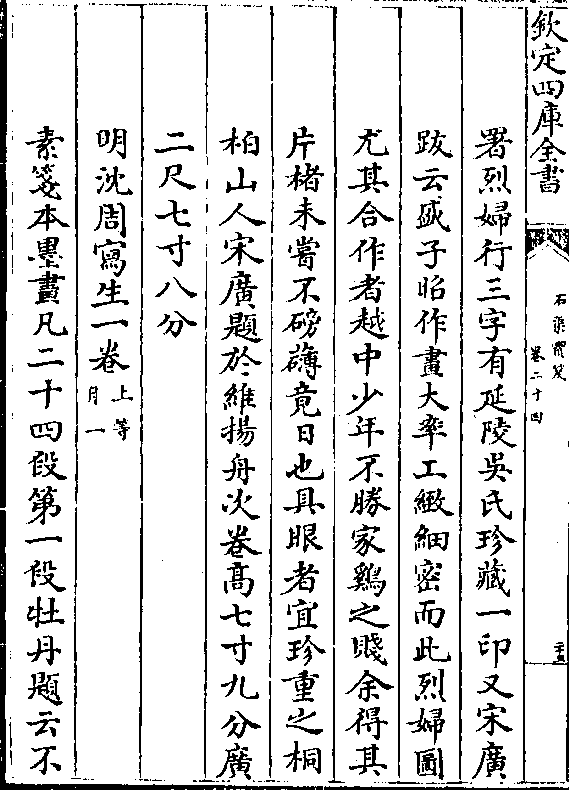 欽定四庫全書
石渠寶笈
卷二十四
署烈婦行三字有延陵吳氏珍藏一印又宋廣
跋云盛子昭作畫大率工緻細密而此烈婦圖
尤其合作者越中少年不勝家鷄之賤余得其
片楮未嘗不磅礴竟日也具眼者宜珍重之桐
柏山人宋廣題於維揚舟次卷高七寸九分廣
二尺七寸八分
明沈周寫生一卷上等
月一
素箋本墨畫凡二十四段第一段牡丹題云不